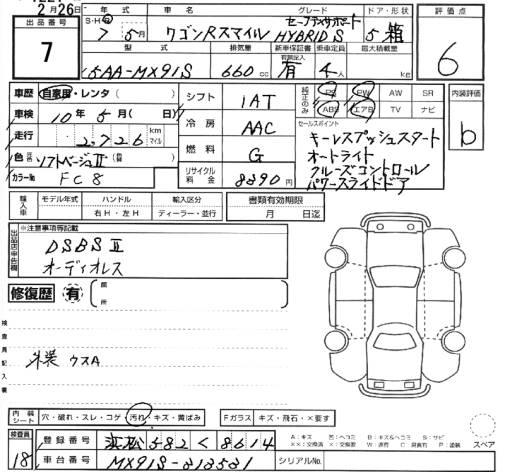 2月26日
出品番号
7
年式 車名 グレード ドア・形状
S・H・R 7年5月 ワゴンRスマイル セーフティサポート HYBRID S 5 箱
型式 排気量 新車保証書 乗車定員 最大積載量
5AA-MX91S 660cc 有 4人 kg
評価点
6
車歴 自家用・レンタ( )
車検 10年5月( 日)
走行 2,726 km マイル
色 ソフトベージュⅡ
カラーNo FC8
シフト 1AT
冷房 AAC
燃料 G
リサイクル料金 8890円
純正のみ
PS PW AW SR
ABS エアB TV ナビ
セールスポイント
キーレスプッシュスタート
オートライト
クルーズコントロール
パワースライドドア
内装評価
b
輸入車 モデル年式 ハンドル 輸入区分
年 右H・左H ディーラー・並行
書類有効期限
月 日迄
※注意事項等記載
DSBSⅡ
オーディオレス
修復歴 有
箇所
検査員記入書
外装 ウスA
内装シート 穴・破れ・スレ・コゲ 汚れ・キズ・黄ばみ
Fガラス キズ・飛石・×要す
検査員
18
登録番号 浜松 582 く 8614
車台番号 MX91S-212521
シリアルNo.
A:キズ U:ヘコミ B:キズ&ヘコミ S:サビ
××:交換済 ×:交換要 W:波有 C:腐食有 P:塗装
スペア